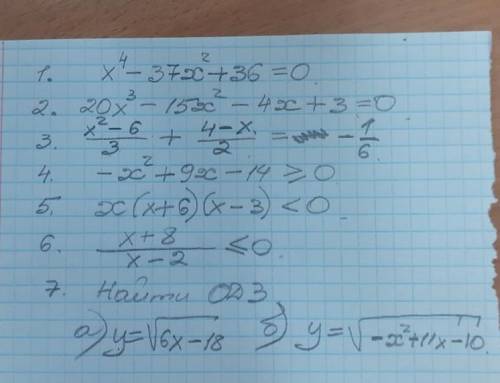 1. x⁴ - 37x² + 36 = 0
2. 20x³ - 15x² - 4x + 3 = 0
3. (x² - 6)/3 + (4 - x)/2 = -1/6
4. -x² + 9x - 14 ≥ 0
5. x(x+6)(x-3) < 0
6. (x+8)/(x-2) ≤ 0
7. Найти ОДЗ
а) y = √(6x-18) б) y = √(-x²+11x-10)